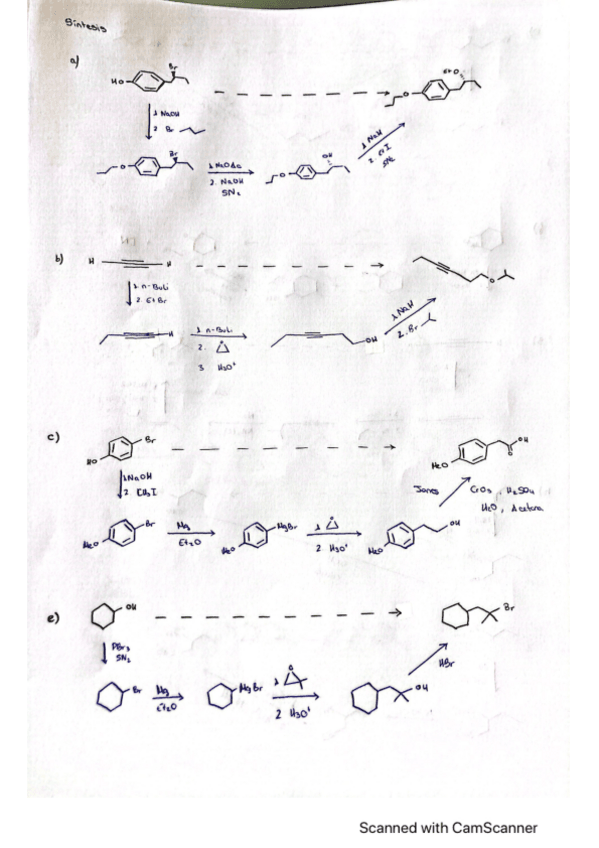 Síntesis
a)
Br
HO
EtO
1. NaOH
2. Br
1. NaH
2. EtI
SN2
Br
O
1. NaOAc
2. NaOH
SN2
OH
O
b)
H H
O
1. n-BuLi
2. EtBr
1. NaH
2. Br
H
1. n-BuLi
2. O
3. H3O+
OH
c)
Br
HO
OH
O
MeO
1. NaOH
2. CH3I
Jones
CrO3, H2SO4
H2O, Acetona
Br
MeO
Mg
Et2O
MgBr
MeO
1. O
2. H3O+
OH
MeO
e)
OH
Br
PBr3
SN2
HBr
Br
Mg
Et2O
MgBr
1. O
2. H3O+
OH
Scanned with CamScanner